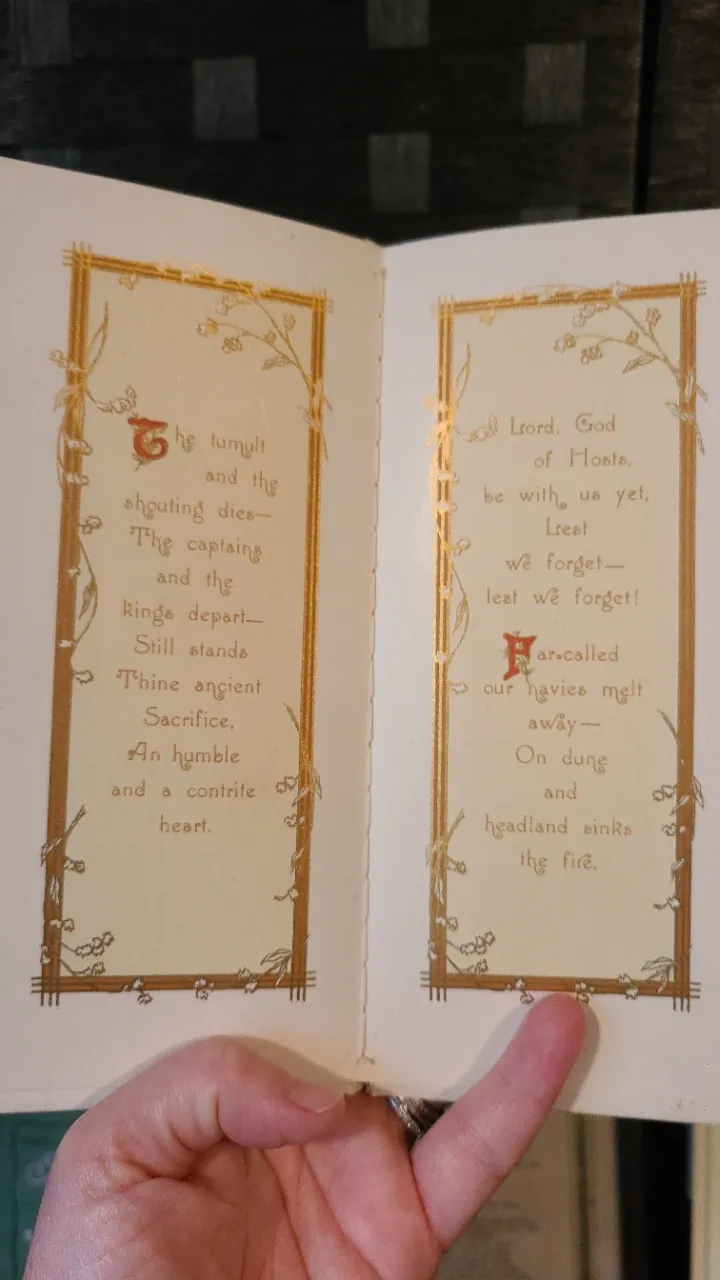 The tumult
and the
shouting dies—
The captains
and the
kings depart—
Still stands
Thine ancient
Sacrifice,
An humble
and a contrite
heart.
Lord, God
of Hosts,
be with us yet,
Lest
we forget—
lest we forget!
Far-called
our navies melt
away—
On dune
and
headland sinks
the fire,